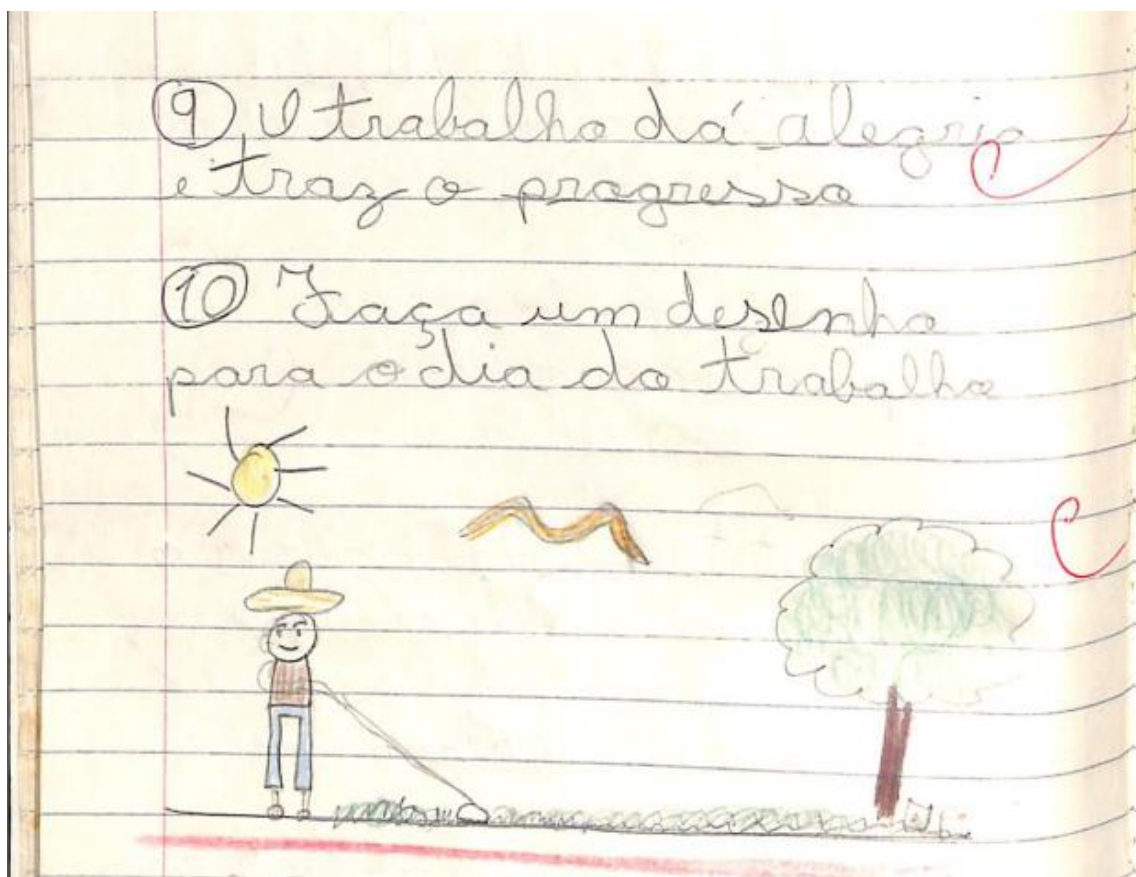 9 O trabalho dá alegria
e traz o progresso
10 Faça um desenho
para o dia do trabalho